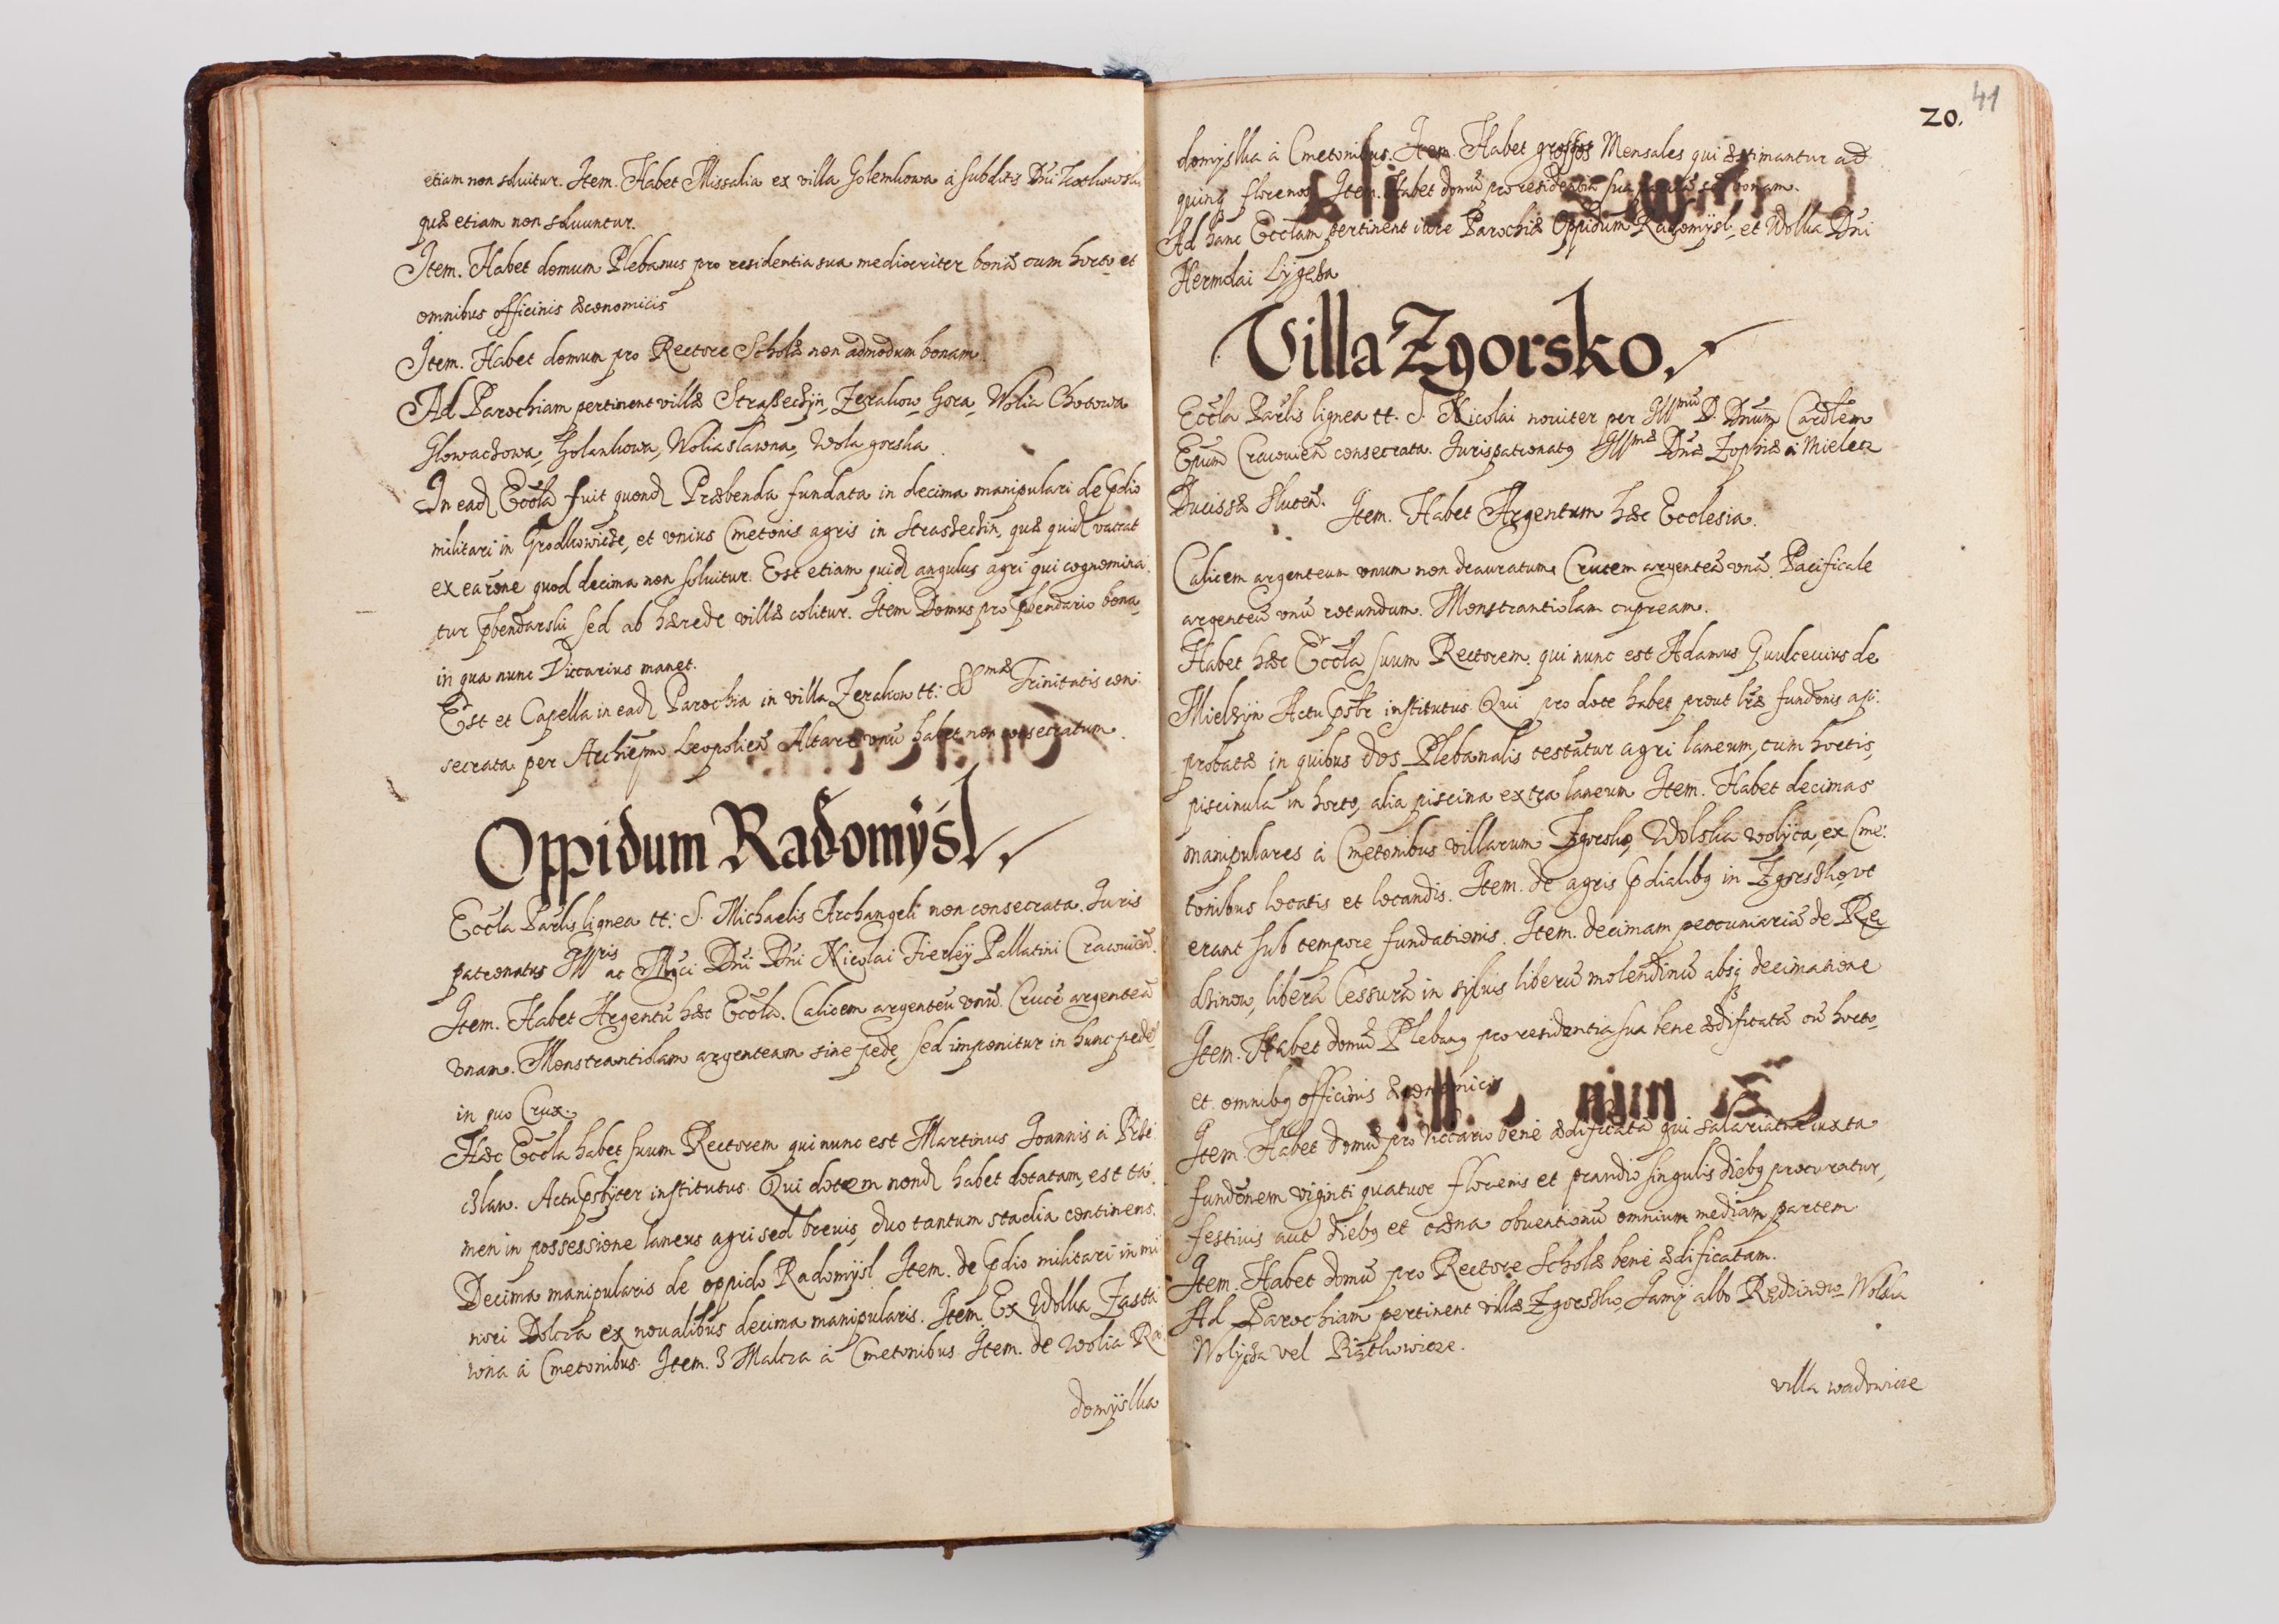 etiam non soluitur. Item. Habet Missalia ex villa Golemkowa à subditis Dñi
quæ etiam non soluuntur.
Item. Habet domum Plebanus pro residentia sua mediocriter bonã cum horto et
omnibus officinis æconomicis
Item. Habet domum pro Rectore Scholæ non admodum bonam.
Ad Parochiam pertinent villæ Straszeczÿn, Zerakow, Gora, Wolia Chotowa
Glowaczowa, Golankowa, Wolia slawna, Wola gorska.
In ead Eccla fuit quond Præbenda fundata in decima manipulari de pdio
militari in Grodkowicze, et vnius Cmetonis agris in Straszechin, quæ quid vacat
ex earõne quod decima non soluitur. Est etiam quid angulus agri qui cognomina
tur pbendarski sed ab hærede villæ colitur. Item Domus pro pbendario bona,
in qua nunc Viccarius manet.
Est et Capella in ead Parochia in villa Zerakow tt: SSmæ Trinitatis con:
secrata per Archiepm Leopolieñ Altare vnũ habet non consecratum.
Oppidum Radomÿsl
Eccla Parlis lignea tt: S. Michaelis Archangeli non consecrata. Iuris
patronatus Illris ac Mgci Dñi Dñi Nicolai Fierleÿ Pallatini Cracouieñ.
Item. Habet Argentũ hæc Eccla. Calicem argenteũ vnũ. Crucẽ argenteã
vnam. Monstrantiolam argenteam sine pede, sed imponitur in hunc pedẽ
in quo Crux.
Hæc Eccla habet suum Rectorem qui nunc est Martinus Ioannis à Prze
cslaw. Actu psbÿter institutus. Qui dotem nond habet dotatam, est ta:
men in possessione laneus agri sed breuis, duo tantum stadia continens.
Decima manipularis de oppido Radomÿsl. Item. de pdio militari in mi
nori Dolcza ex noualibus decima manipularis. Item. Ex Wolka
wna à Cmetonibus. Item. 3 Malcza à Cmetonibus. Item. de Wolia Ra
domÿslka
20.
41
domÿslka à Cmetonibus. Item. Habet grossos Mensales qui æstimantur ad
quinq florenos. Item. Habet domũ pro residentia sua sed bonam.
Ad hanc Ecclam pertinent iure Parochiæ Oppidum Radomÿsl, et Wolka Dñi
Hermolai Lÿgeza
Villa Zgorsko
Eccla Parlis lignea tt. S. Nicolai nouiter per Illmũ D. Dnum Cardlem
Epum Cracouieñ consecrata. Iurispatronatq Illmæ Dnæ Zophiæ à Mielecz
Ducissæ Sluceñ. Item. Habet Argentum hæc Ecclesia.
Calicem argenteum vnum non deauratum. Crucem argenteã vnã. Pacificale
argenteũ vnũ rotundum. Monstrantiolam cupream.
Habet hæc Eccla suum Rectorem. qui nunc est Adamus de
Mielzÿn Actu psbr institutus. Qui pro dote habet prout lræ fundõnis ap:
probatæ in quibus dos Plebanalis testatur agri laneum, cum hortis,
piscinula in horto, alia piscina extra laneum. Item. Habet decimas
manipulares à Cmetonibus villarum Zgorsko, Wolska wolÿca, ex Cme:
tonibus locatis et locandis. Item. de agris pdialibq in Zgorsko, vt
erant sub tempore fundationis. Item. decimam peccuniariã de Re
dzinow, liberã Cessurã in syluis liberũ molendinũ absq decimatione
Item. Habet domũ Plebanq pro residentia sua bene ædificatã cũ horto,
et omnibq officinis æconomicis
Item. Habet domũ pro Viccario bene ædificatã qui salariatur iuxta
fundõnem viginti quatuor florenis et prandio singulis diebq procuratur,
festiuis aut diebq et cæna obuentionũ omnium mediam partem
Item. Habet domũ pro Rectore Scholæ bene ædificatam.
Ad Parochiam pertinent villæ Zgorsko, Jamÿ albo Redzinow, Wolska
Wolÿcza vel Piątkowicze.
villa wadowicze